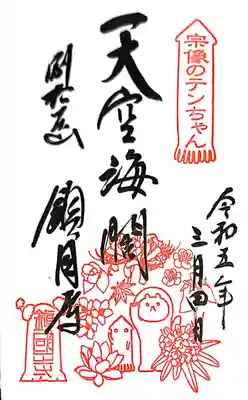 宗像のテンちゃん
令和五年
三月四日
天空海闊
鎮国寺
鎮國寺